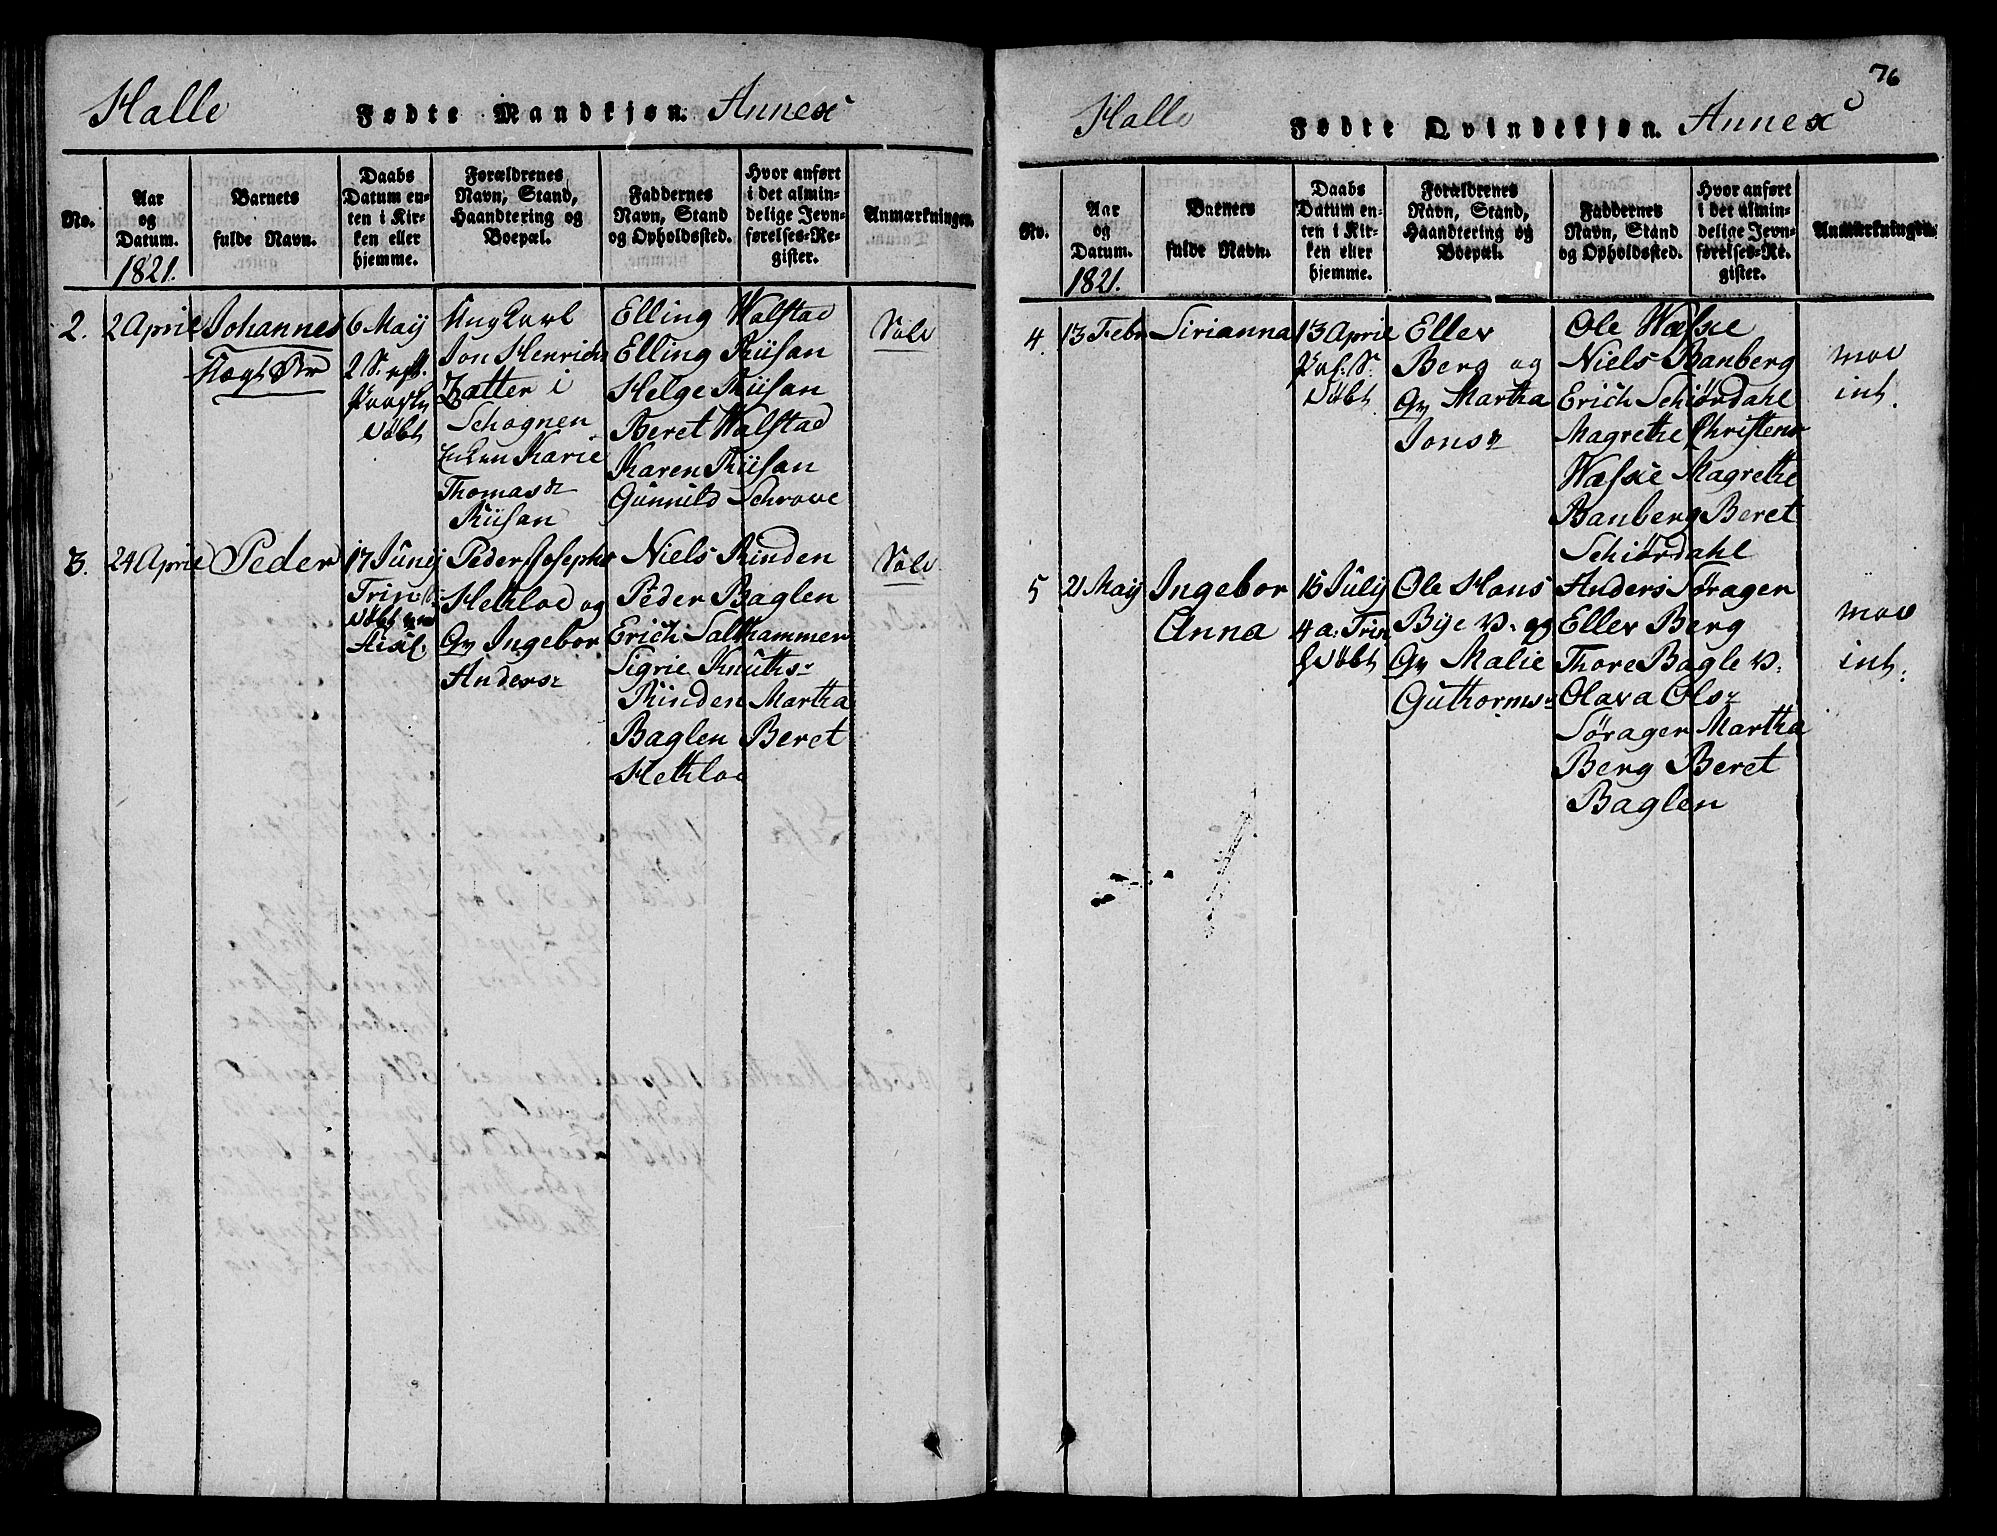 Halle Fødte Mandkjøn. Annex
No.
Aar
og
Datum.
1821.
Barnets
fulde Navn.
Daabs
Datum en-
ten i Kir-
ken eller
hjemme.
Forældrenes
Navn, Stand,
Haandtering og
Boepæl.
Faddernes
Navn, Stand
og Opholdssted.
Hvor anført
i det almin-
delige Jevn-
førelses-Re-
gister.
Anmærkninger.
2.
2 April
Johannes
6 May
2 S.
døbt
Ungkarl
Jon Henrich
Zatter i
Schognen
Karie
Thomasdr
Riisan
Elling Walstad
Elling Riisan
Helge Riisan
Beret Walstad
Karen Riisan
Gunnild Schrove
3.
24 April
Peder
17 Junij
Trin
døbt
Peder Josephs
Hekloe og
Gv Ingebor
Andersr
Niels Rinden
Peder Baglen
Erich Salthammer
Sigrie Knuths-
Rinden Martha
Baglen Beret
Hekloe
76
Halle Fødte Qvindekjøn. Annex
No.
Aar
og
Datum.
1821.
Barnets
fulde Navn.
Daabs
Datum en-
ten i Kir-
ken eller
hjemme.
Forældrenes
Navn, Stand,
Haandtering og
Boepæl.
Faddernes
Navn, Stand
og Opholdssted.
Hvor anført
i det almin-
delige Jevn-
førelses-Re-
gister.
Anmærkninger.
4.
13 Febr
Sirianna
13 April
døbt
Eller
Berg og
Gv Martha
Jonsr
Ole Wæske
Niels Banberg
Erich Schiørdahl
Magrethe Christens
Wæske Magrethe
Banberg Beret
Schiørdahl
int.
5
21 May
Ingebor
Anna
15 July
4 a: Trin
døbt
Ole Hans
Bye og
Gv Malie
Guthorms-
Anders Sørager
Eller Berg
Thore Bagle
Olava Olsr
Sørager Martha
Berg Beret
Baglen
int: